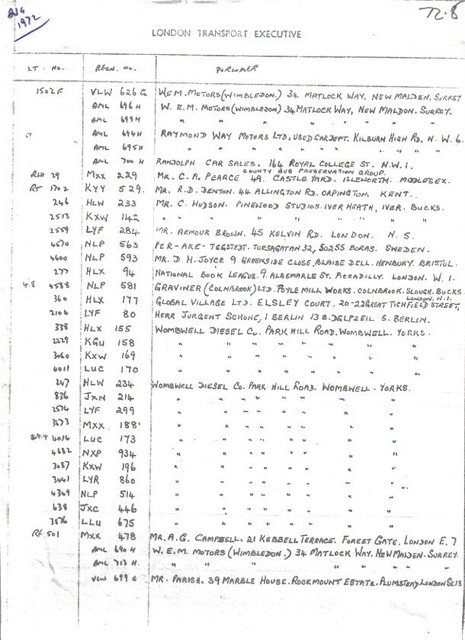 AUG 1972
TL.8
LONDON TRANSPORT EXECUTIVE
LT. NO. REGN. NO. PURCHASER
1502F VLW 626 G W.E.M. MOTORS (WIMBLEDON) 34 MATLOCK WAY, NEW MALDEN. SURREY
AML 696 H W. E. M. MOTORS (WIMBLEDON) 34 MATLOCK WAY, NEW MALDON. SURREY.
AML 699 H " " " " " "
AML 694 H RAYMOND WAY MOTORS LTD, USED CAR DEPT. KILBURN HIGH RD. N. W. 6.
AML 695 H " " " " " "
AML 700 H RANDOLPH CAR SALES. 164 ROYAL COLLEGE ST. N.W.1.
COUNTY BUS PRESERVATION GROUP.
RLH 29 MXX 229 MR. C. A. PEARCE 49. CASTLE YARD. ISLEWORTH. MIDDLESEX.
RT 1702 KYY 529. MR. R.D. DENTON. 44 ALLINGTON RD. ORPINGTON, KENT.
246 HLW 233 MR. C. HUDSON. PINEWOOD STUDIOS. IVER HEATH, IVER. BUCKS.
2513 KXW 142 " " " " "
2559 LYF 284 MR. ARMOUR BROWN. 45 KELVIN RD. LONDON. N. 5.
4570 NLP 563 PER-AKE-TEGSTEDT. TORSAGATAN 32, 50255 BORAS. SWEDEN.
4600 NLP 593 MR. D. H. JOYCE 9 GREENSIDE CLOSE, BLAISE DELL. HENBURY. BRISTOL.
277 HLX 94 NATIONAL BOOK LEAGUE. 9. ALBEMARLE ST. PICCADILLY. LONDON. W. 1.
4588 NLP 581 GRAVINER (COLNBROOK) LTD. POYLE MILL WORKS. COLNBROOK. SLOUGH. BUCKS
LONDON. W. 1.
360 HLX 177 GLOBAL VILLAGE LTD. ELSLEY COURT. 20-22 GREAT TICHFIELD STREET,
2104 LYF 80 HERR JURGENT SCHONE, 1 BERLIN 13 B. DELPZEIL 5. BERLIN.
338 HLX 155 WOMBWELL DIESEL CO. PARK HILL ROAD. WOMBWELL. YORKS.
2229 KGU 158 " " " " " " "
3060 KXW 169 " " " " " " "
4011 LUC 170 " " " " " " "
247 HLW 234 WOMBWELL DIESEL CO. PARK HILL ROAD. WOMBWELL. YORKS.
836 JXN 214 " " " " " " "
2574 LYF 299 " " " " " " "
3673 MXX 188 " " " " " " "
4014 LUC 173 " " " " " " "
4682 NXP 934 " " " " " " "
3087 KXW 196 " " " " " " "
3441 LYR 860 " " " " " " "
4349 NLP 514 " " " " " " "
638 JXC 446 " " " " " " "
3576 LLU 675 " " " " " " "
RF 501 MXX 478 MR. A.G. CAMPBELL. 21 KEBBELL TERRACE. FOREST GATE. LONDON E. 7
AML 690 H W. E. M. MOTORS (WIMBLEDON) 34 MATLOCK WAY. NEW MALDEN. SURREY.
AML 713 H " " " " " "
VLW 699 G MR. PARISH. 39 MARBLE HOUSE. ROCKMOUNT ESTATE. PLUMSTEAD, LONDON SE 18